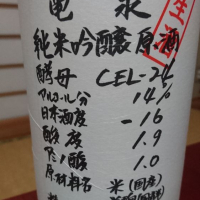 亀泉
純米吟醸原酒
酵母 CEL-24
アルコール分 14%
日本酒度 -16
酸度 1.9
アミノ酸 1.0
原材料名 米(国産)